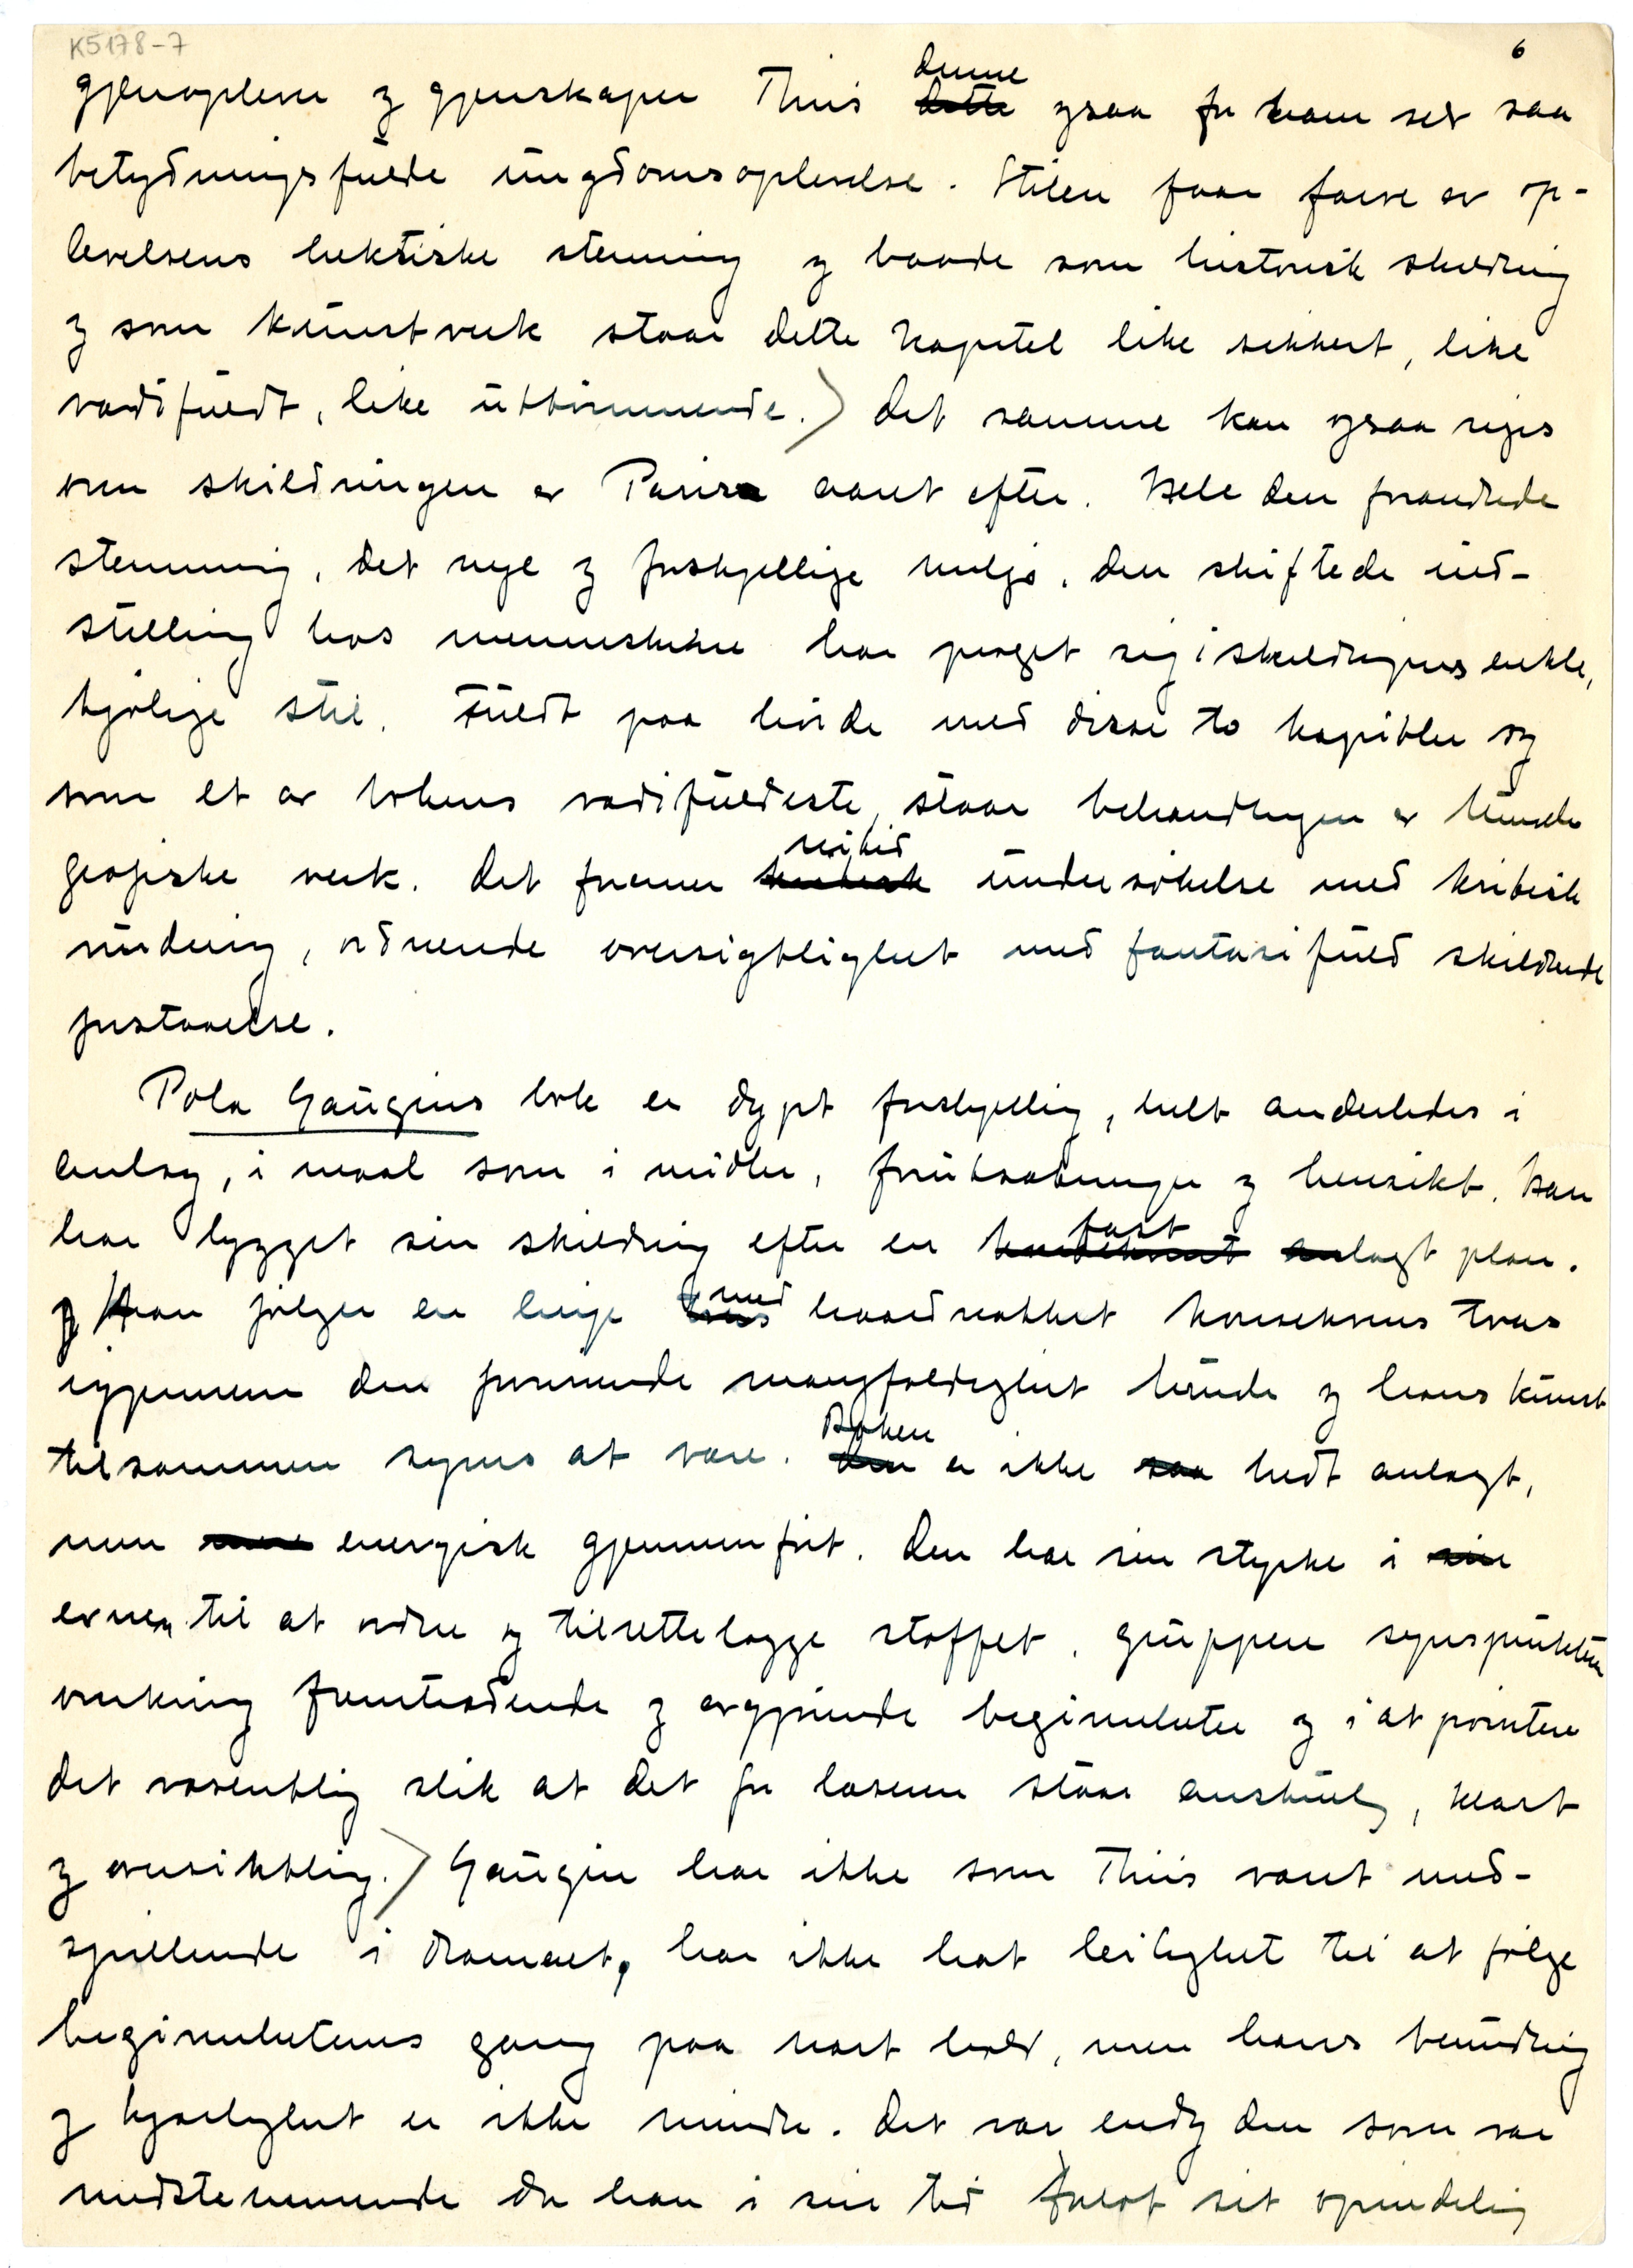 K5178-7
6
denne
gjenoplever og gjenskaper Thiis dette ogsaa for ham selv saa
betydningsfulde ungdomsoplevelse. Stilen faar farve av op-
levelsens hektiske stemning og baade som historisk skildring
og som kunstverk staar dette kapitel like sikkert, like
værdifuldt, like uttømmende. Det samme kan ogsaa siges
om skildringen av Paris aaret efter. Hele den forandrede
stemning, det nye og forskjellige miljø, den skiftede ind-
stilling hos menneskene har præget sig i skildringens enkle,
kjølige stil. Fuldt paa høide med disse to kapitler og
som et av bokens værdifuldeste, staar behandlingen av Munchs
grafiske verk. Det forener undersøkelse med kritisk
vurdering, ordnende oversigtlighet med fantasifuld skildrende
forstaaelse.
Pola Gauguins bok er dypt forskjellig, helt anderledes i
anlæg, i maal som i midler, forutsætninger og hensikt. Han
fast
har bygget sin skildring efter en anlagt plan.
med
og han følger en linje haardnakket konsekvens tvers
igjennem den mangfoldighet Munch og hans kunst
Boken
tilsammen synes at være. den er ikke saa bredt anlagt,
men mere energisk gjennemført. Den har sin styrke i sin
evnen til at ordne og tilrettelægge stoffet, gruppere synspunktene
omkring fremtrædende og avgjørende begivenheter og i at pointere
det væsentlig slik at det for læseren staar anskuelig, klart
og oversiktlig. Gauguin har ikke som Thiis været med-
spillende i dramaet, har ikke hat leilighet til at følge
begivenhetenes gang paa nært hold, men hans beundring
og kjærlighet er ikke mindre. Det var endog den som var
medstemmende da han i sin tid forlot sit oprindelig